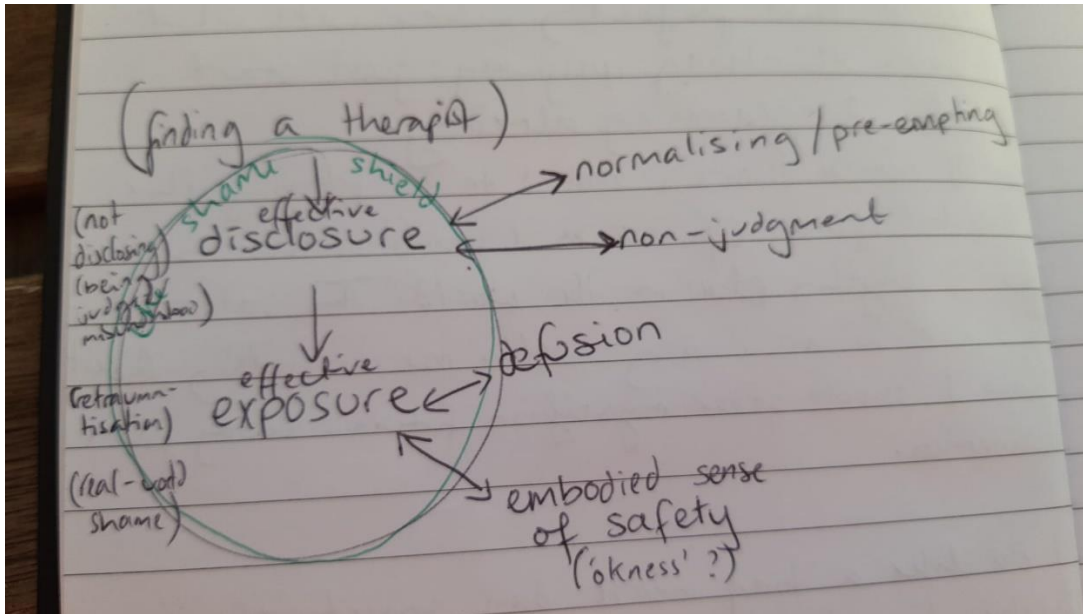 (finding a therapist)
shame shield
effective
disclosure
normalising / pre-empting
non-judgment
(not
disclosing)
(being
judged
effective
exposure
defusion
(retrauma-
tisation)
(real-world
shame)
embodied sense
of safety
('okness'?)